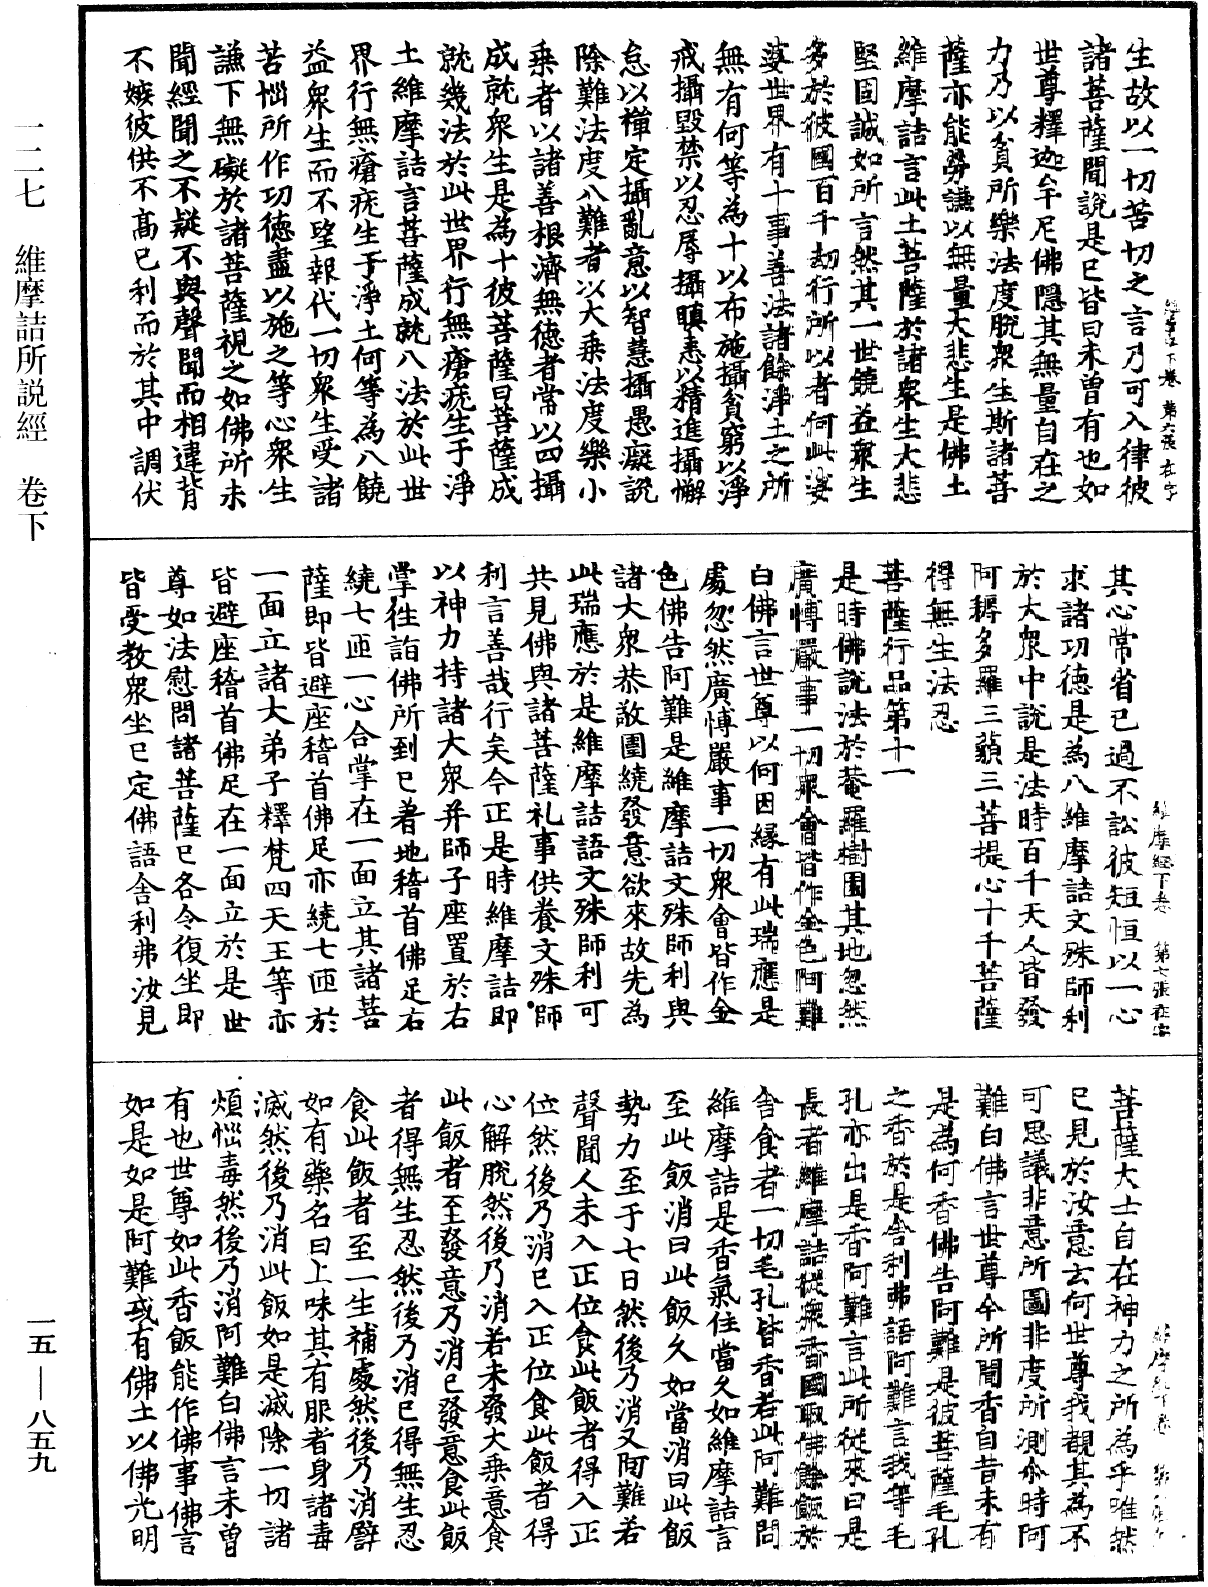 生故以一切苦切之言乃可入律彼
諸菩薩聞說是已皆曰未曾有也如
世尊釋迦牟尼佛隱其無量自在之
力乃以貧所樂法度脫衆生斯諸菩
薩亦能勞謙以無量大悲生是佛土
維摩詰言此土菩薩於諸衆生大悲
堅固誠如所言然其一世饒益衆生
多於彼國百千劫行所以者何此娑
婆世界有十事善法諸餘淨土之所
無有何等為十以布施攝貧窮以淨
戒攝毀禁以忍辱攝瞋恚以精進攝懈
怠以禪定攝亂意以智慧攝愚癡說
除難法度八難者以大乘法度樂小
乘者以諸善根濟無德者常以四攝
成就衆生是為十彼菩薩曰菩薩成
就幾法於此世界行無瘡疣生于淨
土維摩詰言菩薩成就八法於此世
界行無瘡疣生于淨土何等為八饒
益衆生而不望報代一切衆生受諸
苦惱所作功德盡以施之等心衆生
謙下無礙於諸菩薩視之如佛所未
聞經聞之不疑不與聲聞而相違背
不嫉彼供不高己利而於其中調伏
其心常省己過不訟彼短恒以一心
求諸功德是為八維摩詰文殊師利
於大衆中說是法時百千天人皆發
阿耨多羅三藐三菩提心十千菩薩
得無生法忍
菩薩行品第十一
是時佛說法於菴羅樹園其地忽然
廣博嚴事一切衆會皆作金色阿難
白佛言世尊以何因緣有此瑞應是
處忽然廣博嚴事一切衆會皆作金
色佛告阿難是維摩詰文殊師利與
諸大衆恭敬圍繞發意欲來故先為
此瑞應於是維摩詰語文殊師利可
共見佛與諸菩薩礼事供養文殊師
利言善哉行矣今正是時維摩詰即
以神力持諸大衆并師子座置於右
掌往詣佛所到已著地稽首佛足右
繞七匝一心合掌在一面立其諸菩
薩即皆避座稽首佛足亦繞七匝於
一面立諸大弟子釋梵四天王等亦
皆避座稽首佛足在一面立於是世
尊如法慰問諸菩薩已各令復坐即
皆受教衆坐已定佛語舍利弗汝見
菩薩大士自在神力之所為乎唯然
已見於汝意云何世尊我覩其為不
可思議非意所圖非度所測尒時阿
難白佛言世尊今所聞香自昔未有
是為何香佛告阿難是彼菩薩毛孔
之香於是舍利弗語阿難言我等毛
孔亦出是香阿難言此所從來曰是
長者維摩詰從衆香國取佛餘飯於
舍食者一切毛孔皆香若此阿難問
維摩詰是香氣住當久如維摩詰言
至此飯消曰此飯久如當消曰此飯
勢力至于七日然後乃消又阿難若
聲聞人未入正位食此飯者得入正
位然後乃消已入正位食此飯者得
心解脫然後乃消若未發大乘意食
此飯者至發意乃消已發意食此飯
者得無生忍然後乃消已得無生忍
食此飯者至一生補處然後乃消譬
如有藥名曰上味其有服者身諸毒
滅然後乃消此飯如是滅除一切諸
煩惱毒然後乃消阿難白佛言未曾
有也世尊如此香飯能作佛事佛言
如是如是阿難或有佛土以佛光明
維摩經下卷 第七張 在字
一一二七 維摩詰所說經 卷下
一五—八五九